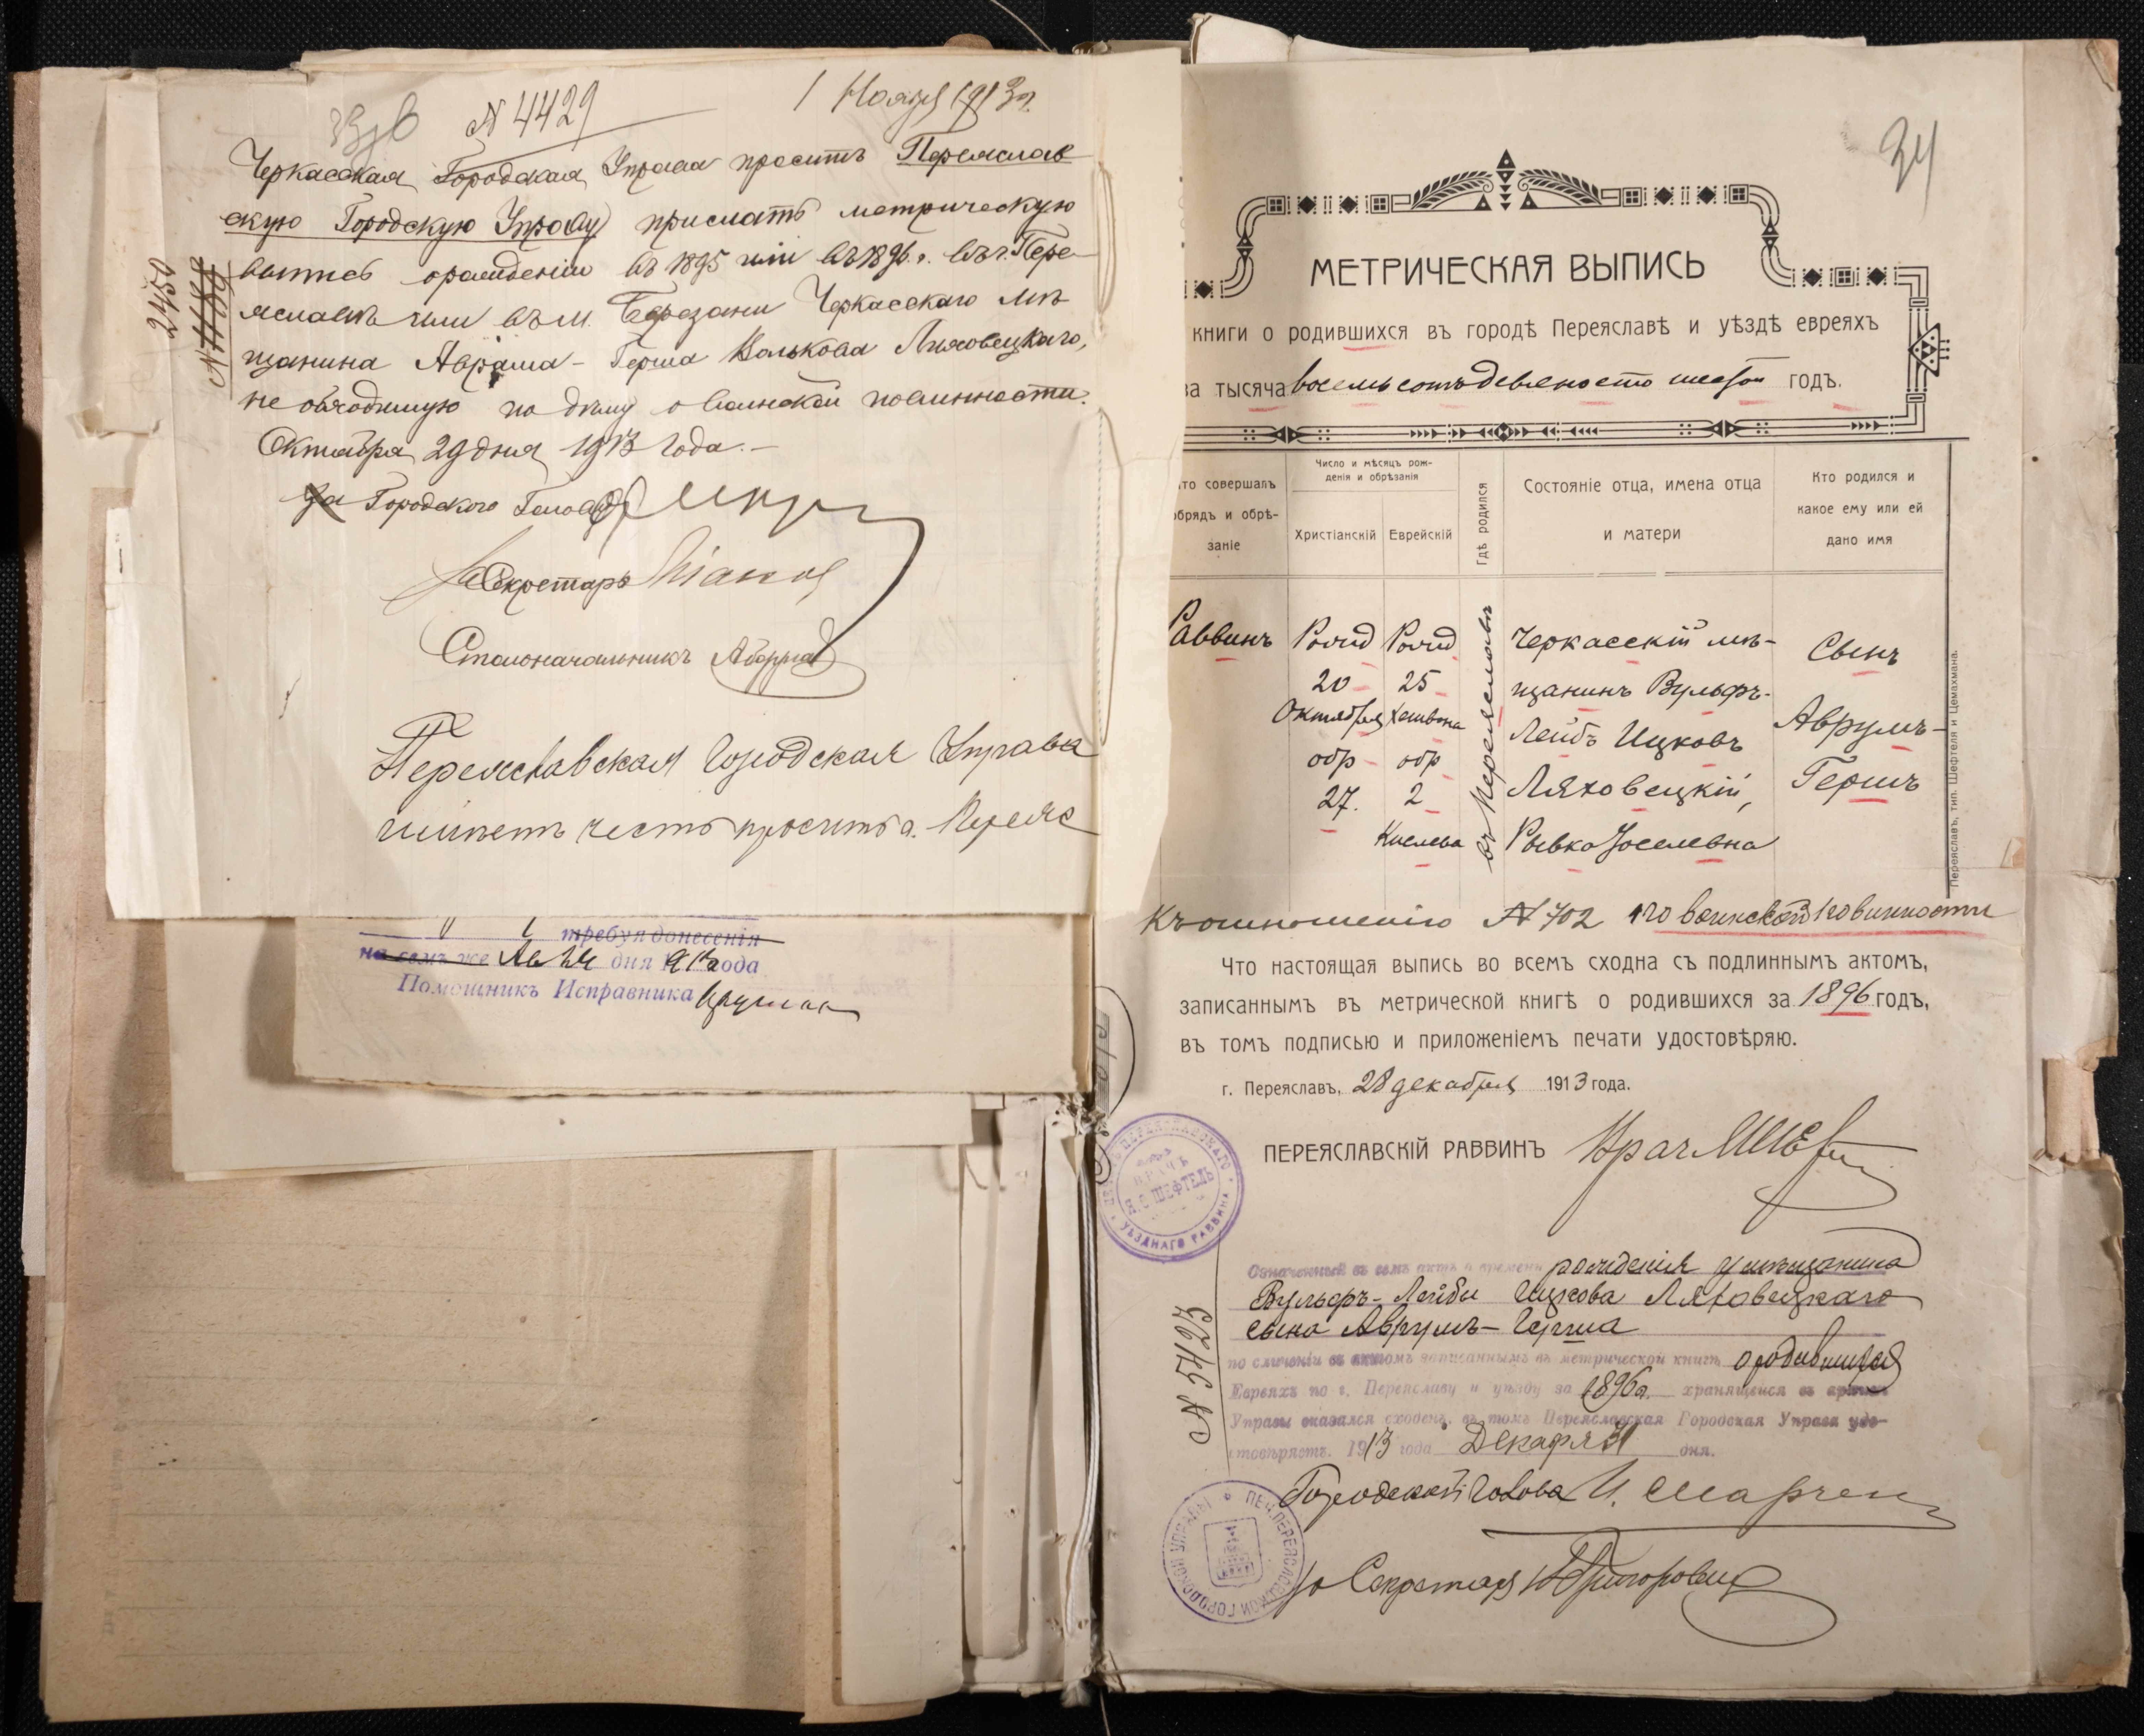 1 Ноября 1913 г.
№ 4429
Черкасская Городская Управа проситъ Переяслав
скую Городскую Управу прислать метрическую
выпись о рожденіи въ 1895 или въ 1896 г. въ г. Пере-
яславѣ или въ м. Березани Черкасскаго мѣ
щанина Аврама-Герша Волькова Ляховецкаго,
необходимую по дѣлу о воинской повинности.
Октября 29 дня 1913 года.-
За Городского Голову
За Секретаря
Столоначальникъ
2450
Переяславская Городская Управа
имѣетъ честь просить г. Переяс
требуя донесенія
на семъ же дня 1913 года
Помощникъ Исправника
34
МЕТРИЧЕСКАЯ ВЫПИСЬ
книги о родившихся въ городѣ Переяславѣ и уѣздѣ евреяхъ
за тысяча восемьсотъ девяносто шестой годъ.
кто совершалъ обрядъ и обрѣ-заніе
Число и мѣсяцъ рож-денія и обрѣзанія
Христіанскій
Еврейскій
Гдѣ родился
Состояніе отца, имена отца и матери
Кто родился и какое ему или ей дано имя
Раввинъ
Рожд 20 Октября обр 27.
Рожд 25 Хешвона обр 2 Кислева
въ Переяславѣ
Черкасскій мѣ-
щанинъ Вульфъ-
Лейбъ Ицковъ
Ляховецкій,
Рывка Іоселевна
Сынъ
Аврумъ-
Гершъ
Переяславъ, тип. Шефтеля и Цемахмана.
Къ отношенію № 702 по воинской повинности
Что настоящая выпись во всемъ сходна съ подлиннымъ актомъ,
записаннымъ въ метрической книгѣ о родившихся за 1896 годъ,
въ томъ подписью и приложеніемъ печати удостовѣряю.
г. Переяславъ, 28 декабря 1913 года.
ПЕРЕЯСЛАВСКІЙ РАВВИНЪ Врач
ВРАЧЪ
Н.С. ШЕФТЕЛЬ
УѢЗДНАГО РАВВИНА
Означенный въ семъ актѣ о времени рожденія у мѣщанина
Вульфъ-Лейбы Ицкова Ляховецкаго
сына Аврумъ-Герша
по сличеніи съ актомъ записаннымъ въ метрической книгѣ о родившихся
Евреяхъ по г. Переяславу и уѣзду за 1896 г. хранящейся въ архивѣ
Управы оказался сходенъ, въ томъ Переяславская Городская Управа удо-
стовѣряетъ. 1913 года Декабря 31 дня.
№ 5423
Городской Голова
За Секретаря
ПЕЧ. ПЕРЕЯСЛАВСКОЙ ГОРОДСКОЙ УПРАВЫ